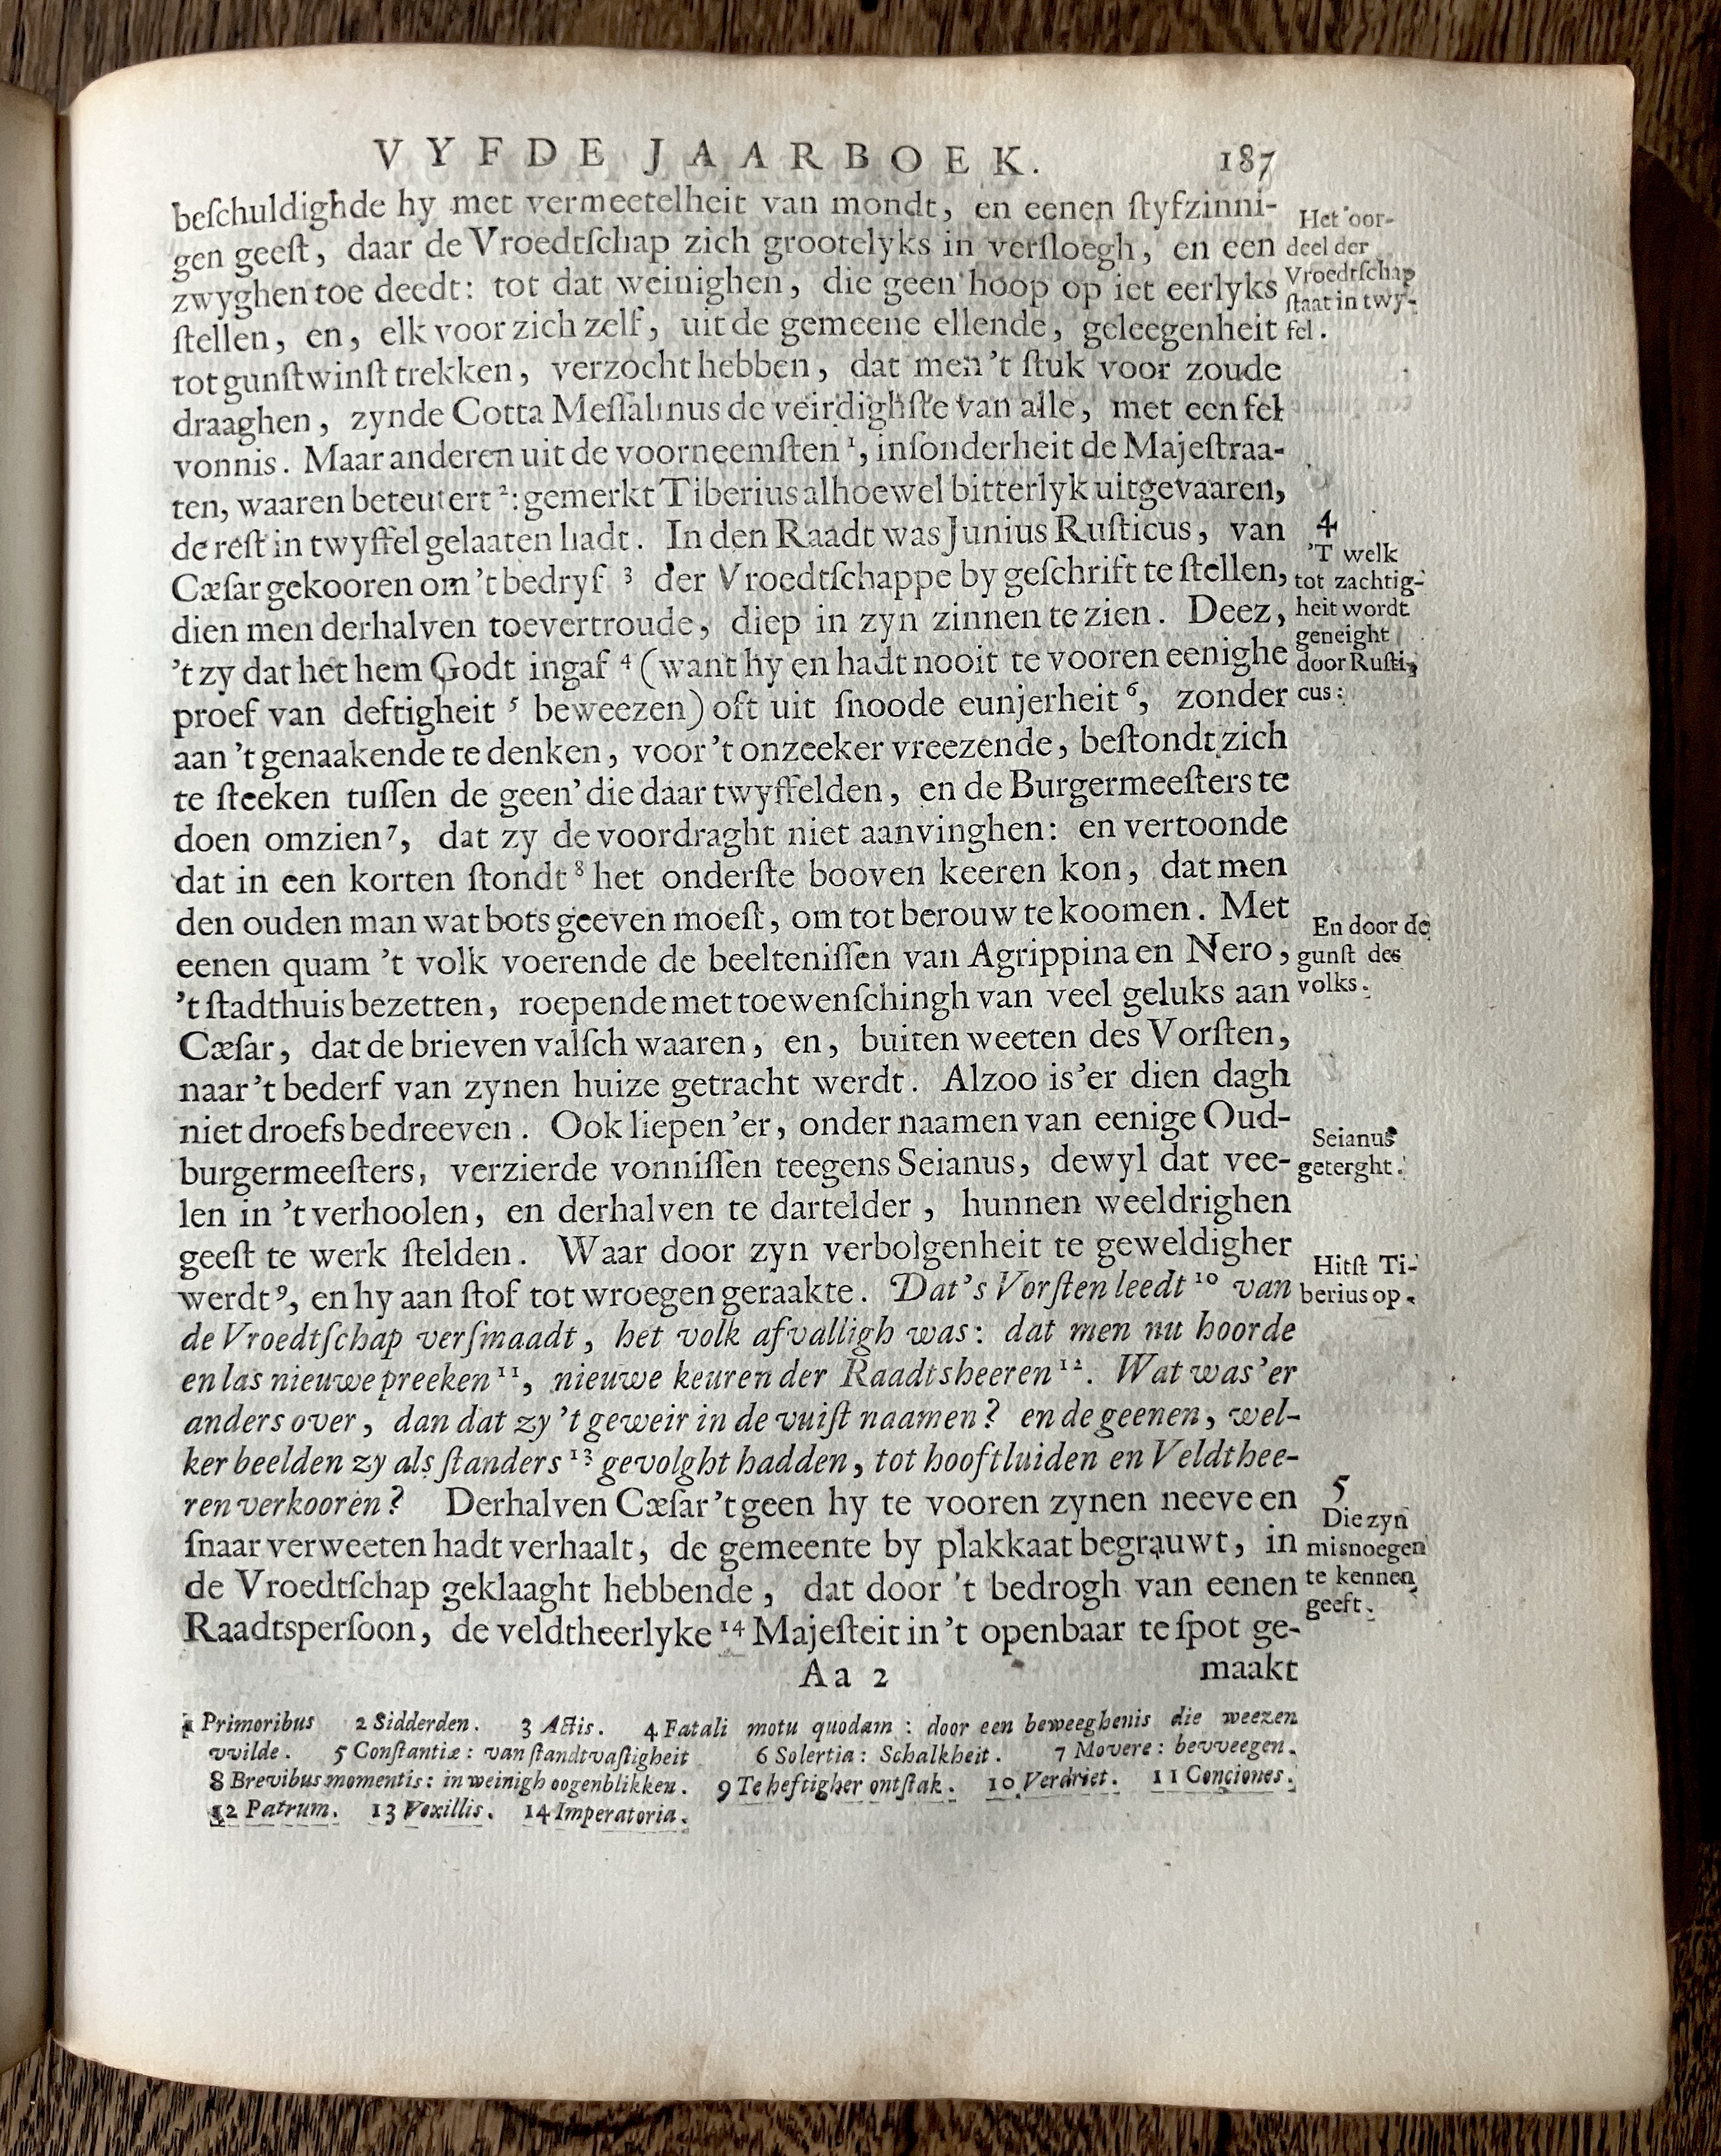 VYFDE JAARBOEK. 187
beſchuldighde hy met vermeetelheit van mondt, en eenen ſtyfzinni-
gen geeſt, daar de Vroedtſchap zich grootelyks in verſloegh, en een
zwyghen toe deedt: tot dat weinighen, die geen hoop op iet eerlyks
ſtellen, en, elk voor zich zelf, uit de gemeene ellende, geleegenheit
tot gunſtwinſt trekken, verzocht hebben, dat men 't ſtuk voor zoude
draaghen, zynde Cotta Meſſalinus de veirdighſte van alle, met een fel
vonnis. Maar anderen uit de voorneemſten ¹, inſonderheit de Majeſtraa-
ten, waaren beteutert ²: gemerkt Tiberius alhoewel bitterlyk uitgevaaren,
de reſt in twyffel gelaaten hadt. In den Raadt was Junius Ruſticus, van
Cæſar gekooren om 't bedryf ³ der Vroedtſchappe by geſchrift te ſtellen,
dien men derhalven toevertroude, diep in zyn zinnen te zien. Deez,
't zy dat het hem Godt ingaf ⁴ (want hy en hadt nooit te vooren eenighe
proef van deftigheit ⁵ beweezen) oft uit ſnoode eunjerheit ⁶, zonder
aan 't genaakende te denken, voor 't onzeeker vreezende, beſtondt zich
te ſteeken tuſſen de geen' die daar twyffelden, en de Burgermeeſters te
doen omzien ⁷, dat zy de voordraght niet aanvinghen: en vertoonde
dat in een korten ſtondt ⁸ het onderſte booven keeren kon, dat men
den ouden man wat bots geeven moeſt, om tot berouw te koomen. Met
eenen quam 't volk voerende de beelteniſſen van Agrippina en Nero,
't ſtadthuis bezetten, roepende met toewenſchingh van veel geluks aan
Cæſar, dat de brieven valſch waaren, en, buiten weeten des Vorſten,
naar 't bederf van zynen huize getracht werdt. Alzoo is 'er dien dagh
niet droefs bedreeven. Ook liepen 'er, onder naamen van eenige Oud-
burgermeeſters, verzierde vonniſſen teegens Seianus, dewyl dat vee-
len in 't verhoolen, en derhalven te dartelder, hunnen weeldrighen
geeſt te werk ſtelden. Waar door zyn verbolgenheit te geweldigher
werdt ⁹, en hy aan ſtof tot wroegen geraakte. Dat's Vorſten leedt ¹⁰ van
de Vroedtſchap verſmaadt, het volk afvalligh was: dat men nu hoorde
en las nieuwe preeken ¹¹, nieuwe keuren der Raadtsheeren ¹². Wat was 'er
anders over, dan dat zy 't geweir in de vuiſt naamen? en de geenen, wel-
ker beelden zy als ſtanders ¹³ gevolght hadden, tot hooftluiden en Veldthee-
ren verkooren? Derhalven Cæſar 't geen hy te vooren zynen neeve en
ſnaar verweeten hadt verhaalt, de gemeente by plakkaat begrauwt, in
de Vroedtſchap geklaaght hebbende, dat door 't bedrogh van eenen
Raadtsperſoon, de veldtheerlyke ¹⁴ Majeſteit in 't openbaar te ſpot ge-
Aa 2 maakt
Het oor-
deel der
Vroedtſchap
ſtaat in twy-
fel.
4
'T welk
tot zachtig-
heit wordt
geneight
door Ruſti-
cus:
En door de
gunſt des
volks.
Seianus
geterght.
Hitſt Ti-
berius op.
5
Die zyn
misnoegen
te kennen
geeft.
1 Primoribus 2 Sidderden. 3 Actis. 4 Fatali motu quodam: door een beweeghenis die weezen
vvilde. 5 Conſtantiæ: van ſtandtvaſtigheit 6 Solertia: Schalkheit. 7 Movere: bevveegen.
8 Brevibus momentis: in weinigh oogenblikken. 9 Te heftigher ontſtak. 10 Verdriet. 11 Conciones.
12 Patrum. 13 Vexillis. 14 Imperatoria.